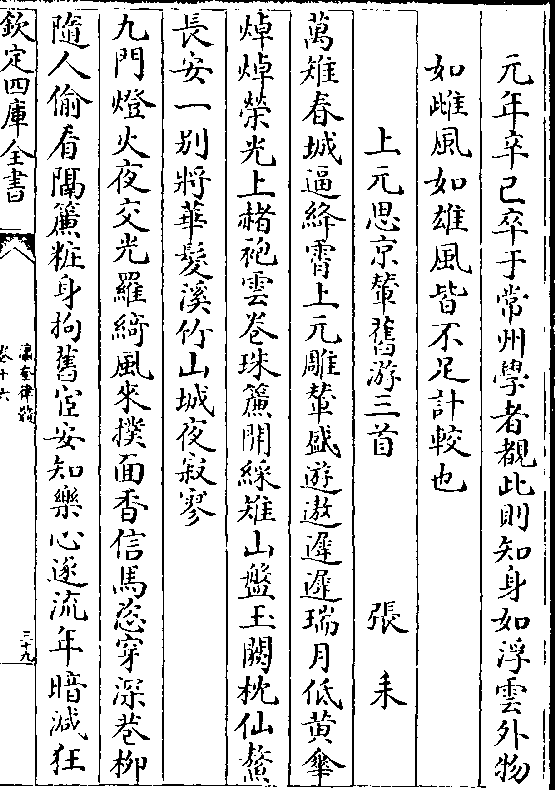 元年卒已卒于常州學者覩此則知身如浮雲外物
如雌風如雄風皆不足計較也
上元思京輦舊游三首 張耒
萬雉春城逼絳霄上元雕輦盛遊遨遲遲瑞月低黄傘
焯焯榮光上赭袍雲卷珠簾開綵雉山盤玉闕枕仙鰲
長安一别將華髮溪竹山城夜寂寥
九門燈火夜交光羅綺風來撲面香信馬恣穿深巷柳
隨人偷看隔簾粧身拘舊宦安知樂心逐流年暗減狂
欽定四庫全書
瀛奎律髓
卷十六
三十九